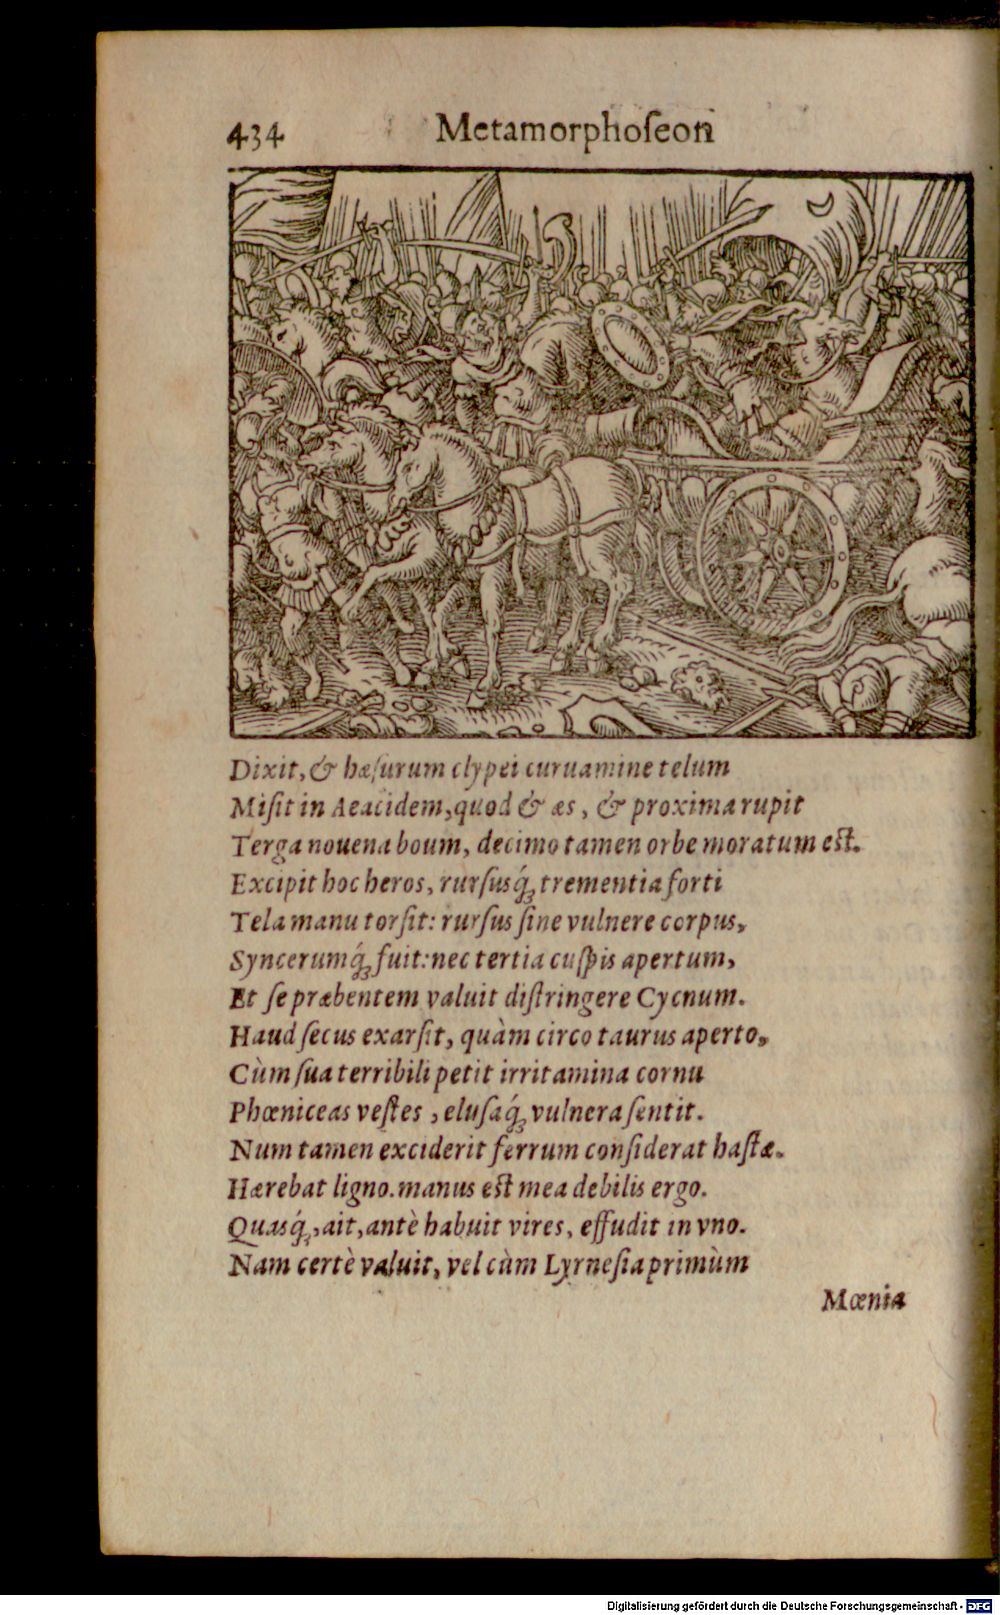 434 Metamorphoſeon
Dixit, & hæſurum clypei curuamine telum
Miſit in Aeacidem, quod & æs, & proxima rupit
Terga nouena boum, decimo tamen orbe moratum eſt.
Excipit hoc heros, rurſusq́ꝫ trementia forti
Tela manu torſit: rurſus ſine vulnere corpus,
Syncerumq́ꝫ fuit: nec tertia cuſpis apertum,
Et ſe præbentem valuit diſtringere Cycnum.
Haud ſecus exarſit, quàm circo taurus aperto,
Cùm ſua terribili petit irritamina cornu
Phœniceas veſtes, eluſaq́ꝫ vulnera ſentit.
Num tamen exciderit ferrum conſiderat haſtæ.
Hærebat ligno. manus eſt mea debilis ergo.
Quasq́ꝫ, ait, antè habuit vires, effudit in vno.
Nam certè valuit, vel cùm Lyrneſia primùm
Mœnia
Digitalisierung gefördert durch die Deutsche Forschungsgemeinschaft - DFG